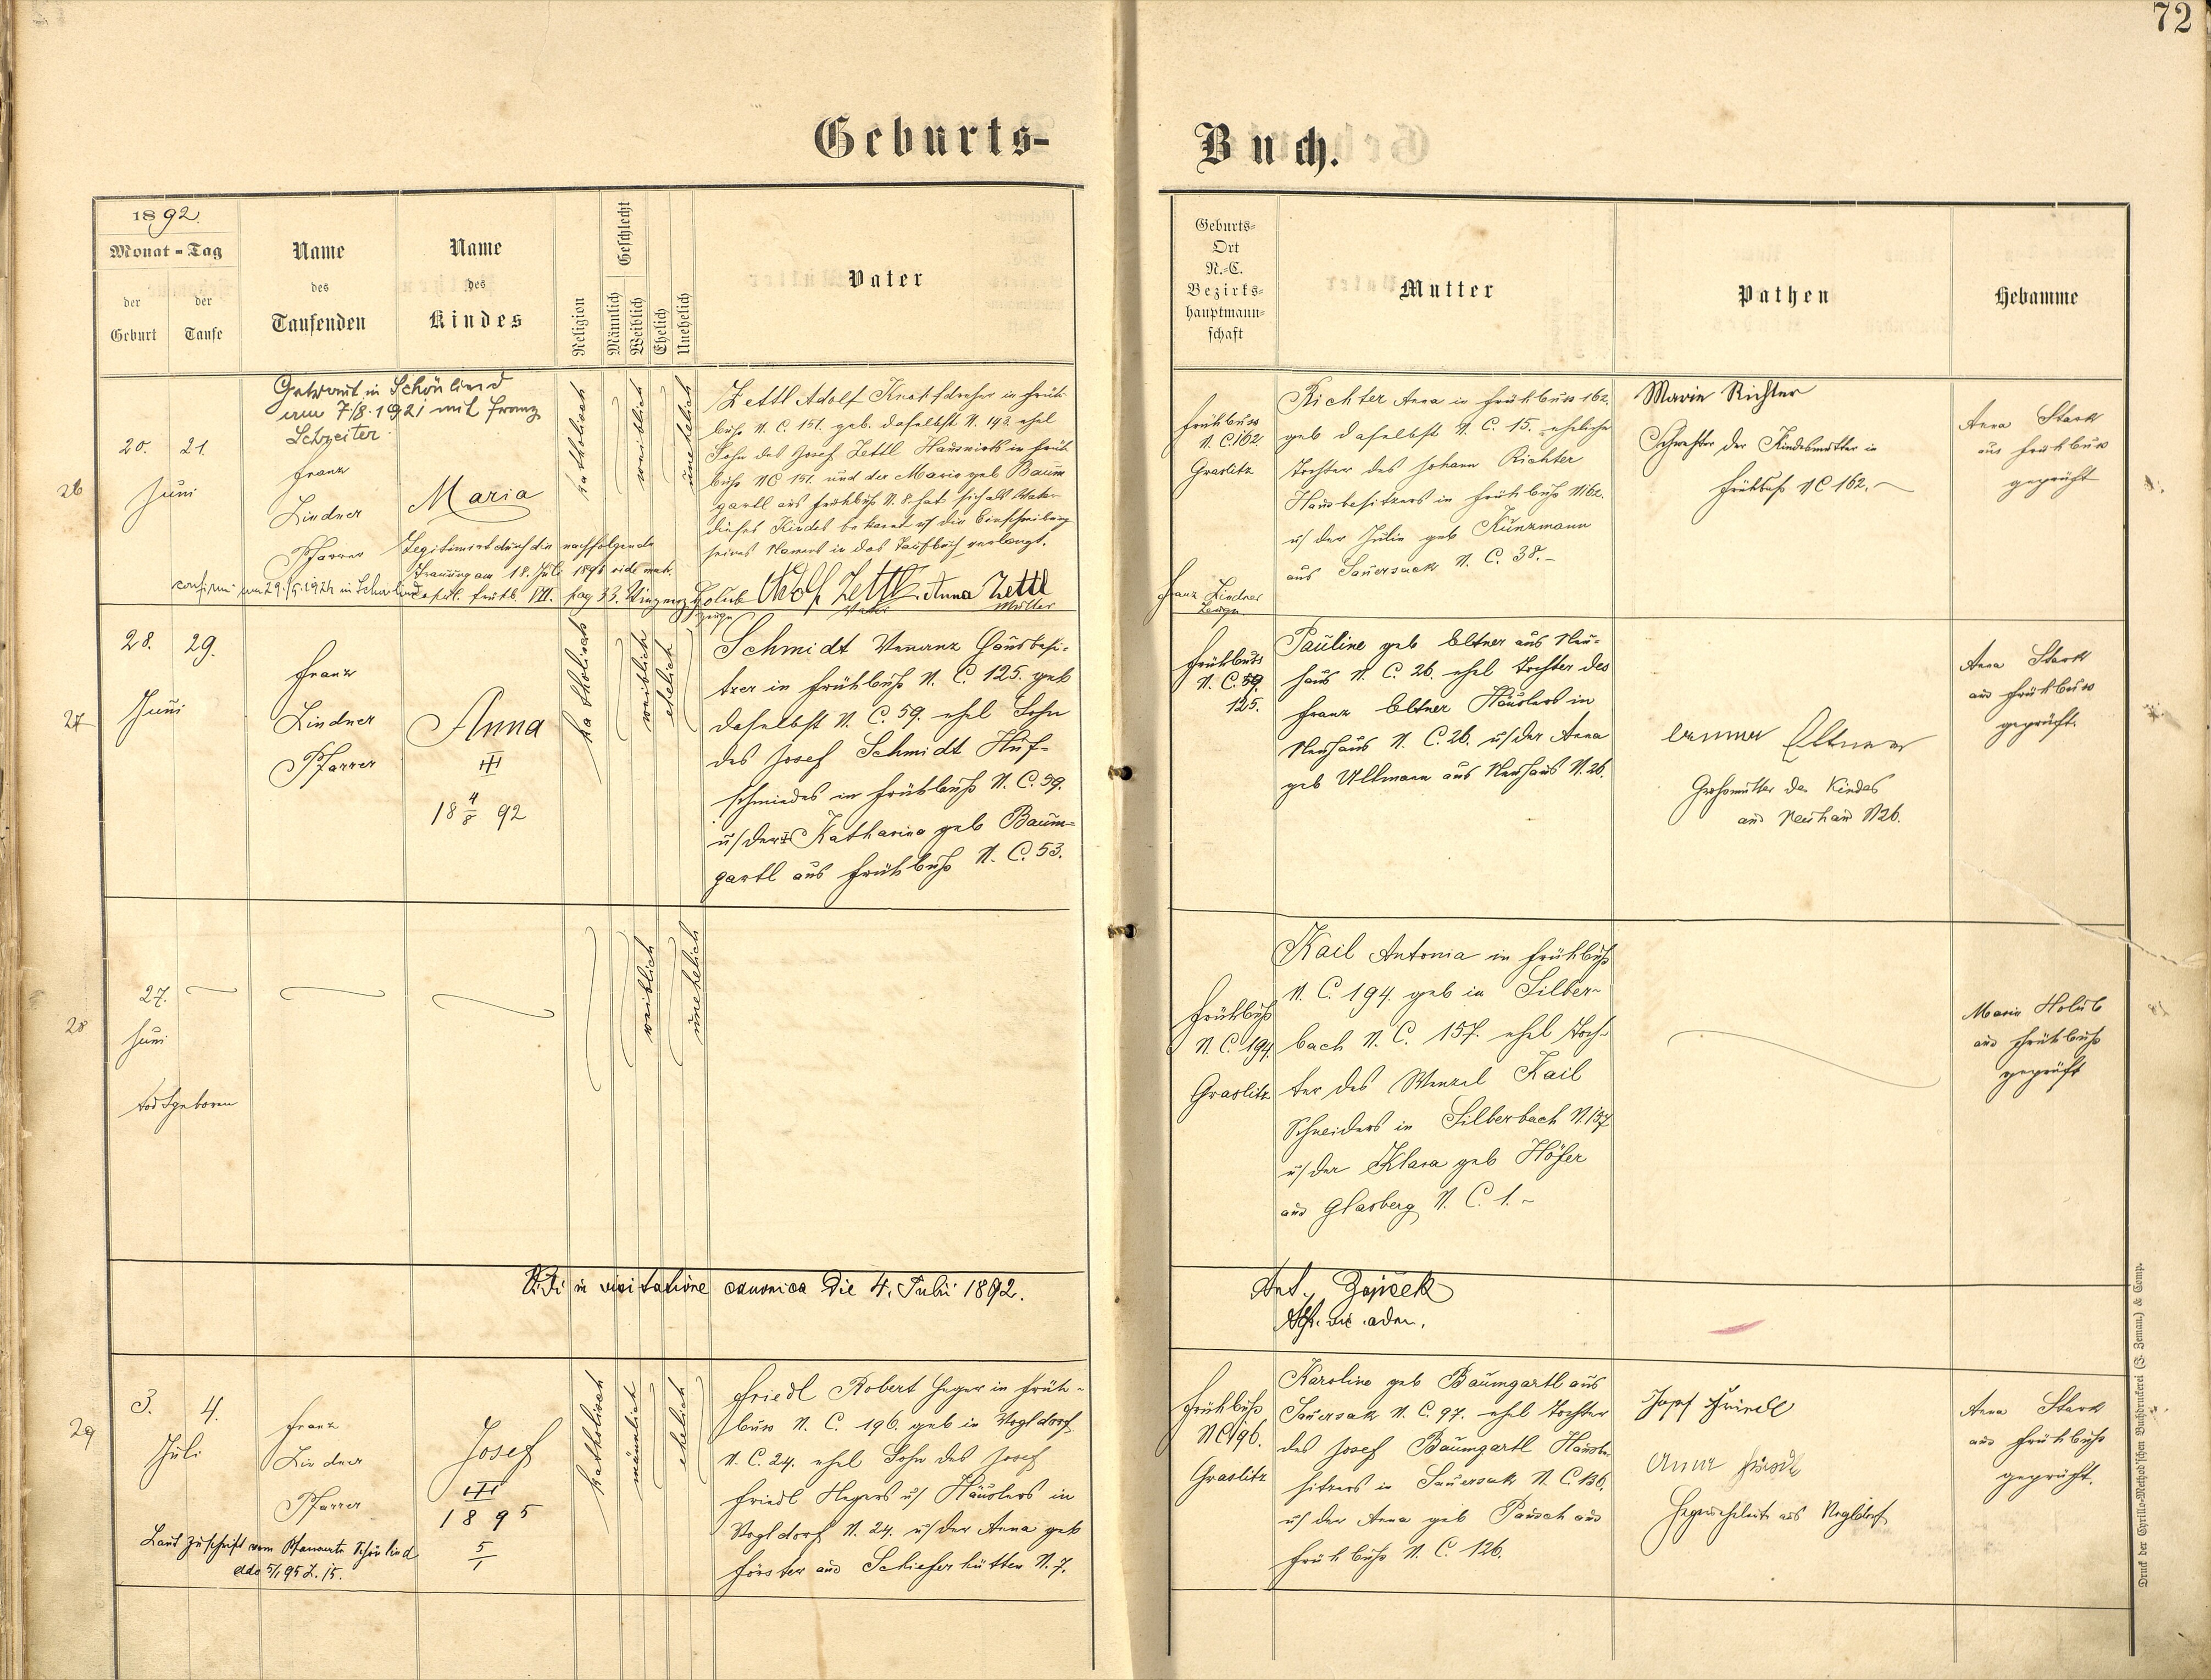 72
Geburts-
Buch.
1892.
Monat - Tag
der Geburt
der Taufe
Name des Taufenden
Name des Kindes
Religion
Geschlecht
Männlich
Weiblich
Ehelich
Unehelich
Vater
Geburts-
Ort
N.-C.
Bezirks-
hauptmann-
schaft
Mutter
Pathen
Hebamme
26
20. 21.
Juni
Getraut in Schönlind
am 7/8. 1921 mit Franz
Schreiter
Franz
Lindner
Pfarrer
Maria
katholisch
weiblich
unehelich
Zettl Adolf Knopfdreher in Früh-
buß N. C. 151. geb. daselbst N. 143. ehel
Sohn des Josef Zettl Hauswirts in Früh
buß NC 151. und der Maria geb Baum
gartl aus Frühbuß N. 8. hat sich als Vater
dieses Kindes bekannt u/ die Einschreibung
seines Namens in das Taufbuch verlangt.
Legitimirt durch die nachfolgende
Trauung am 18. Juli 1896 vide mat.
pag 33.
Holub
Zeuge
Adolf Zettl
Vater
Anna Zettl
Mutter
Frühbuss
N. C. 162.
Graslitz
Franz Lindner
Zeuge
Richter Anna in Frühbuss 162.
geb daselbst N. C. 15. eheliche
Tochter des Johann Richter
Hausbesitzers in Frühbuß N 162.
u/ der Julie geb Kunzmann
aus Sauersack N. C. 38. -
Marie Richter
Schwester der Kindesmutter in
Frühbuß NC 162.
Anna Stark
aus Frühbuss
geprüft
27
28. 29.
Juni
Franz
Lindner
Pfarrer
Anna
18 4/8 92
katholisch
weiblich
ehelich
Schmidt Hausbesi-
tzer in Frühbuß N. C. 125. geb
daselbst N. C. 59. ehel Sohn
des Josef Schmidt Huf-
schmiedes in Frühbuß N. C. 59.
u/ der Katharina geb Baum-
gartl aus Frühbuß N. C. 53.
Frühbuss
N. C. 59
125.
Pauline geb Eltner aus Neu-
haus N. C. 26. ehel Tochter des
Franz Eltner Häuslers in
Neuhaus N. C. 26. u/ der Anna
geb Ullmann aus Neuhaus N. 26.
Eltner
Großmutter des Kindes
aus Neuhaus N26.
Anna Stark
aus Frühbuss
geprüft.
28
27.
Juni
todtgeboren
weiblich
unehelich
Frühbuß
N. C. 194.
Graslitz
Kail Antonia in Frühbuß
N. C. 194. geb in Silber-
bach N. C. 157. ehel Toch-
ter des Wenzel Kail
Schneiders in Silberbach N. 157
u/ der Klara geb Höfer
aus Glasberg N. C. 1. -
Marie Holub
aus Frühbuß
geprüft
Vidi in visitatione canonica die 4. Julii 1892.
Ant.
29
3. 4.
Juli
Franz
Lindner
Pfarrer
Josef
1895
5/1
Laut Zuschrift vom Pfarramte Schönlind
ddo 5/1 95 Z. 15.
katholisch
männlich
ehelich
Friedl Robert Heger in Früh-
buss N. C. 196. geb in Vogldorf
N. C. 24. ehel Sohn des Josef
Friedl Hegers u/ Häuslers in
Vogldorf N. 24. u/ der Anna geb
Förster aus Schieferhütten N. 7.
Frühbuß
NC 196.
Graslitz
Karoline geb Baumgartl aus
Sauersak N. C. 97. ehel Tochter
des Josef Baumgartl Hausbe-
sitzers in Sauersak N. C. 136.
u/ der Anna geb Pausch aus
Frühbuß N. C. 126.
Josef Friedl
Anna Friedl
Hegerseheleute aus Vogldorf
Anna Stark
aus Frühbuß
geprüft.
Druck der Cyrillo-Method'schen Buchdruckerei (J. Zeman) & Comp.